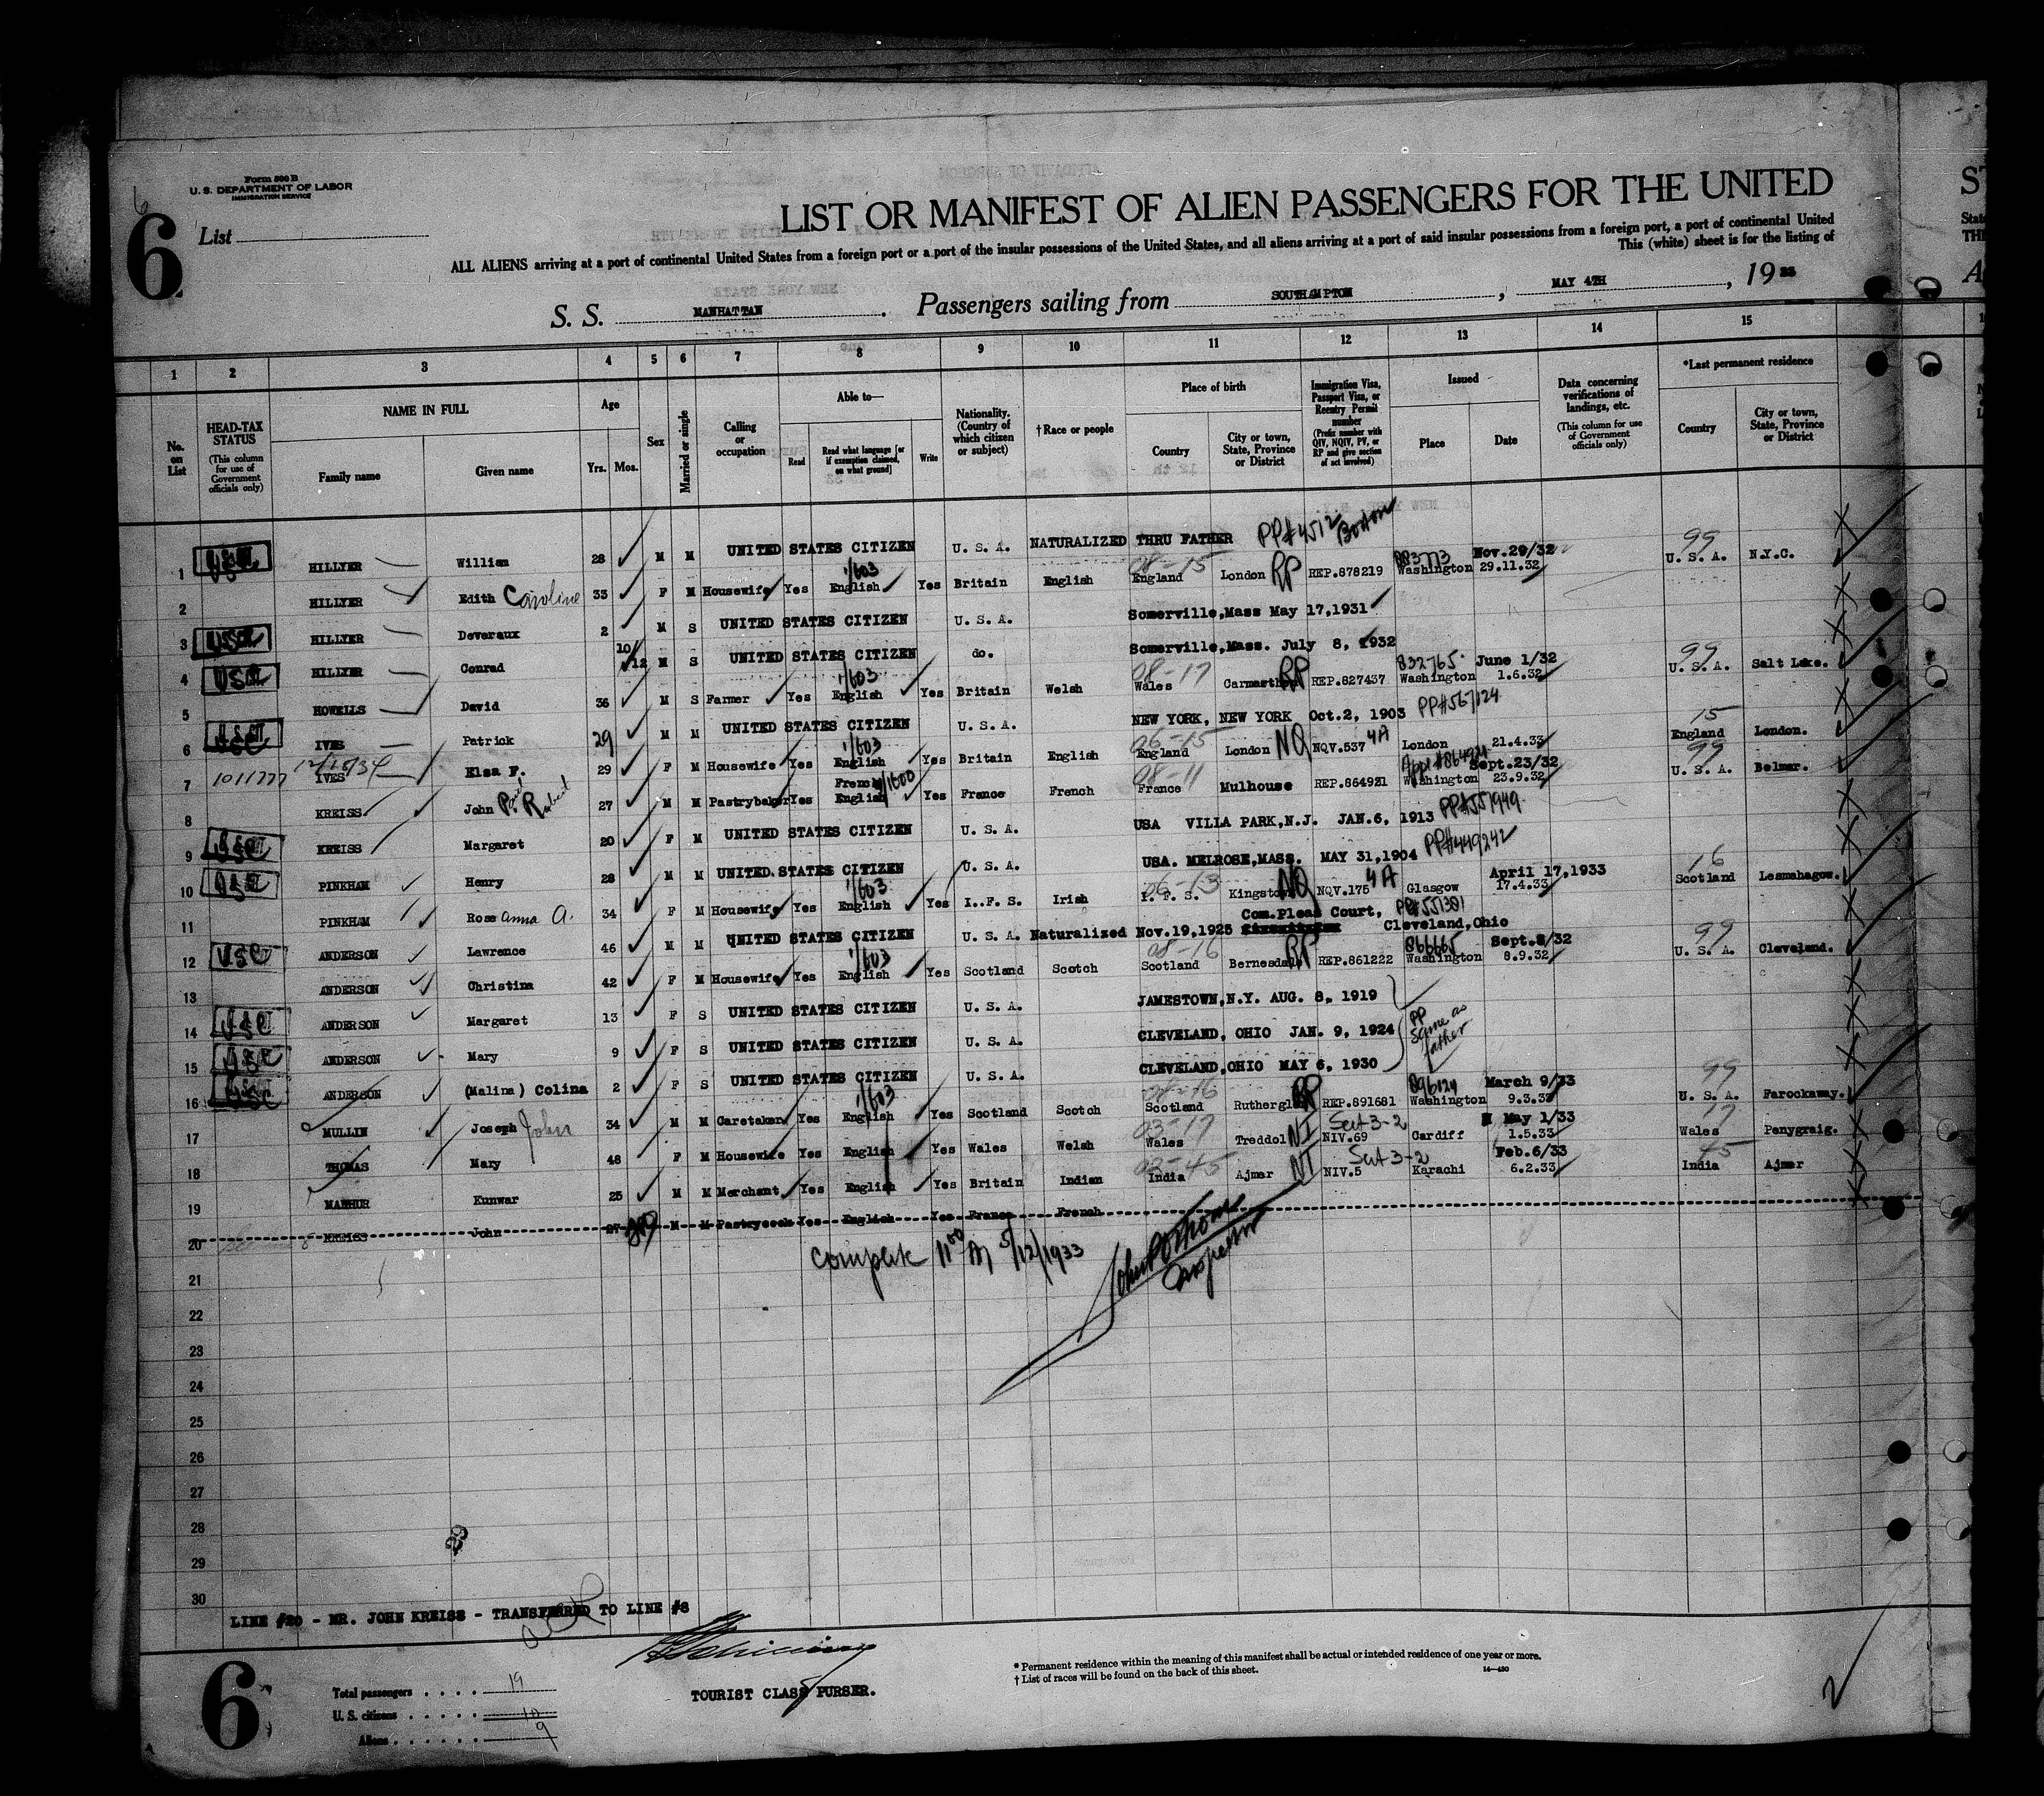 Form 500 B
U. S. DEPARTMENT OF LABOR
IMMIGRATION SERVICE
6
6
List
LIST OR MANIFEST OF ALIEN PASSENGERS FOR THE UNITED
ALL ALIENS arriving at a port of continental United States from a foreign port or a port of the insular possessions of the United States, and all aliens arriving at a port of said insular possessions from a foreign port, a port of continental United
This (white) sheet is for the listing of
S. S. MANHATTAN. Passengers sailing from SOUTHAMPTON, MAY 4TH, 1933
1 2 3 4 5 6 7 8 9 10 11 12 13 14 15
No. on List
HEAD-TAX STATUS (This column for use of Government officials only)
NAME IN FULL
Family name
Given name
Age
Yrs. Mos.
Sex
Married or single
Calling or occupation
Able to—
Read
Read what language [or if exemption claimed, on what ground]
Write
Nationality. (Country of which citizen or subject)
†Race or people
Place of birth
Country
City or town, State, Province or District
Immigration Visa, Passport Visa, or Reentry Permit number (Prefix number with QIV, NQIV, PV, or RP and give section of act involved)
Issued
Place
Date
Data concerning verifications of landings, etc. (This column for use of Government officials only)
*Last permanent residence
Country
City or town, State, Province or District
1 USC HILLYER William 28 M M UNITED STATES CITIZEN U. S. A. NATURALIZED THRU FATHER PP#4512 Boston
2 HILLYER Edith Caroline 33 F M Housewife Yes English 1/603 Yes Britain English England 08-15 London RP REP.878219 Washington Nov.29/32 29.11.32 99 U. S. A. N.Y.C.
3 USC HILLYER Deveraux 2 M S UNITED STATES CITIZEN U. S. A. Somerville,Mass May 17,1931
4 USC HILLYER Conrad 10/12 M S UNITED STATES CITIZEN do. Somerville,Mass. July 8, 1932
5 HOWELLS David 36 M S Farmer Yes English 1/603 Yes Britain Welsh Wales 08-17 Carmarthen RP REP.827437 832765 Washington June 1/32 1.6.32 99 U. S. A. Salt Lake.
6 USC IVES Patrick 29 M M UNITED STATES CITIZEN U. S. A. NEW YORK, NEW YORK Oct.2, 1903 PP#567124
7 1011777 12/10/34 IVES Elsa F. 29 F M Housewife Yes English 1/603 Yes Britain English England 06-15 London NQ NQV.537 4A London 21.4.33 15 England London.
8 KREISS John Paul Robert 27 M M Pastrybaker Yes French English 1/600 Yes France French France 08-11 Mulhouse REP.864921 Washington Sept.23/32 23.9.32 99 U. S. A. Belmar.
9 USC KREISS Margaret 20 F M UNITED STATES CITIZEN U. S. A. USA VILLA PARK,N.J. JAN.6, 1913 PP#551949
10 USC PINKHAM Henry 28 M M UNITED STATES CITIZEN U. S. A. USA. MELROSE,MASS. MAY 31,1904 PP#449242
11 PINKHAM Rose anna A. 34 F M Housewife Yes English 1/603 Yes I..F. S. Irish I. F. S. 06-13 Kingstown NQ NQV.175 4A Glasgow April 17,1933 17.4.33 16 Scotland Lesmahagow.
12 USC ANDERSON Lawrence 46 M M UNITED STATES CITIZEN U. S. A. Naturalized Nov.19,1925 Com.Pleas Court, Cleveland,Ohio PP#551381
13 ANDERSON Christina 42 F M Housewife Yes English 1/603 Yes Scotland Scotch Scotland 08-16 Bernesdale RP REP.861222 866665 Washington Sept.8/32 8.9.32 99 U. S. A. Cleveland.
14 USC ANDERSON Margaret 13 F S UNITED STATES CITIZEN U. S. A. JAMESTOWN,N.Y. AUG. 8, 1919
15 USC ANDERSON Mary 9 F S UNITED STATES CITIZEN U. S. A. CLEVELAND, OHIO JAN. 9, 1924 PP same as father
16 USC ANDERSON (Malina) Colina 2 F S UNITED STATES CITIZEN U. S. A. CLEVELAND,OHIO MAY 6, 1930
17 MULLIN Joseph John 34 M M Caretaker Yes English 1/603 Yes Scotland Scotch Scotland 08-16 Rutherglen RP REP.891681 896124 Washington March 9/33 9.3.33 99 U. S. A. Farockaway.
18 THOMAS Mary 48 F M Housewife Yes English Yes Wales Welsh Wales 03-17 Treddol NI NIV.69 Sect 3-2 Cardiff May 1/33 1.5.33 17 Wales Penygraig.
19 MATHUR Kunwar 25 M M Merchant Yes English Yes Britain Indian India 02-45 Ajmer NI NIV.5 Sect 3-2 Karachi Feb.6/33 6.2.33 45 India Ajmer
20 KREISS John 27 M M Pastrycook Yes English Yes France French
complete 11 00 A 5/12/1933
Inspector
21
22
23
24
25
26
27
28
29
30
29
LINE #20 - MR. JOHN KREISS - TRANSFERRED TO LINE #8
TOURIST CLASS PURSER.
6
Total passengers . . . . 19
U. S. citizens . . . . . 10
Aliens . . . . . . 9
* Permanent residence within the meaning of this manifest shall be actual or intended residence of one year or more.
† List of races will be found on the back of this sheet.
14—430